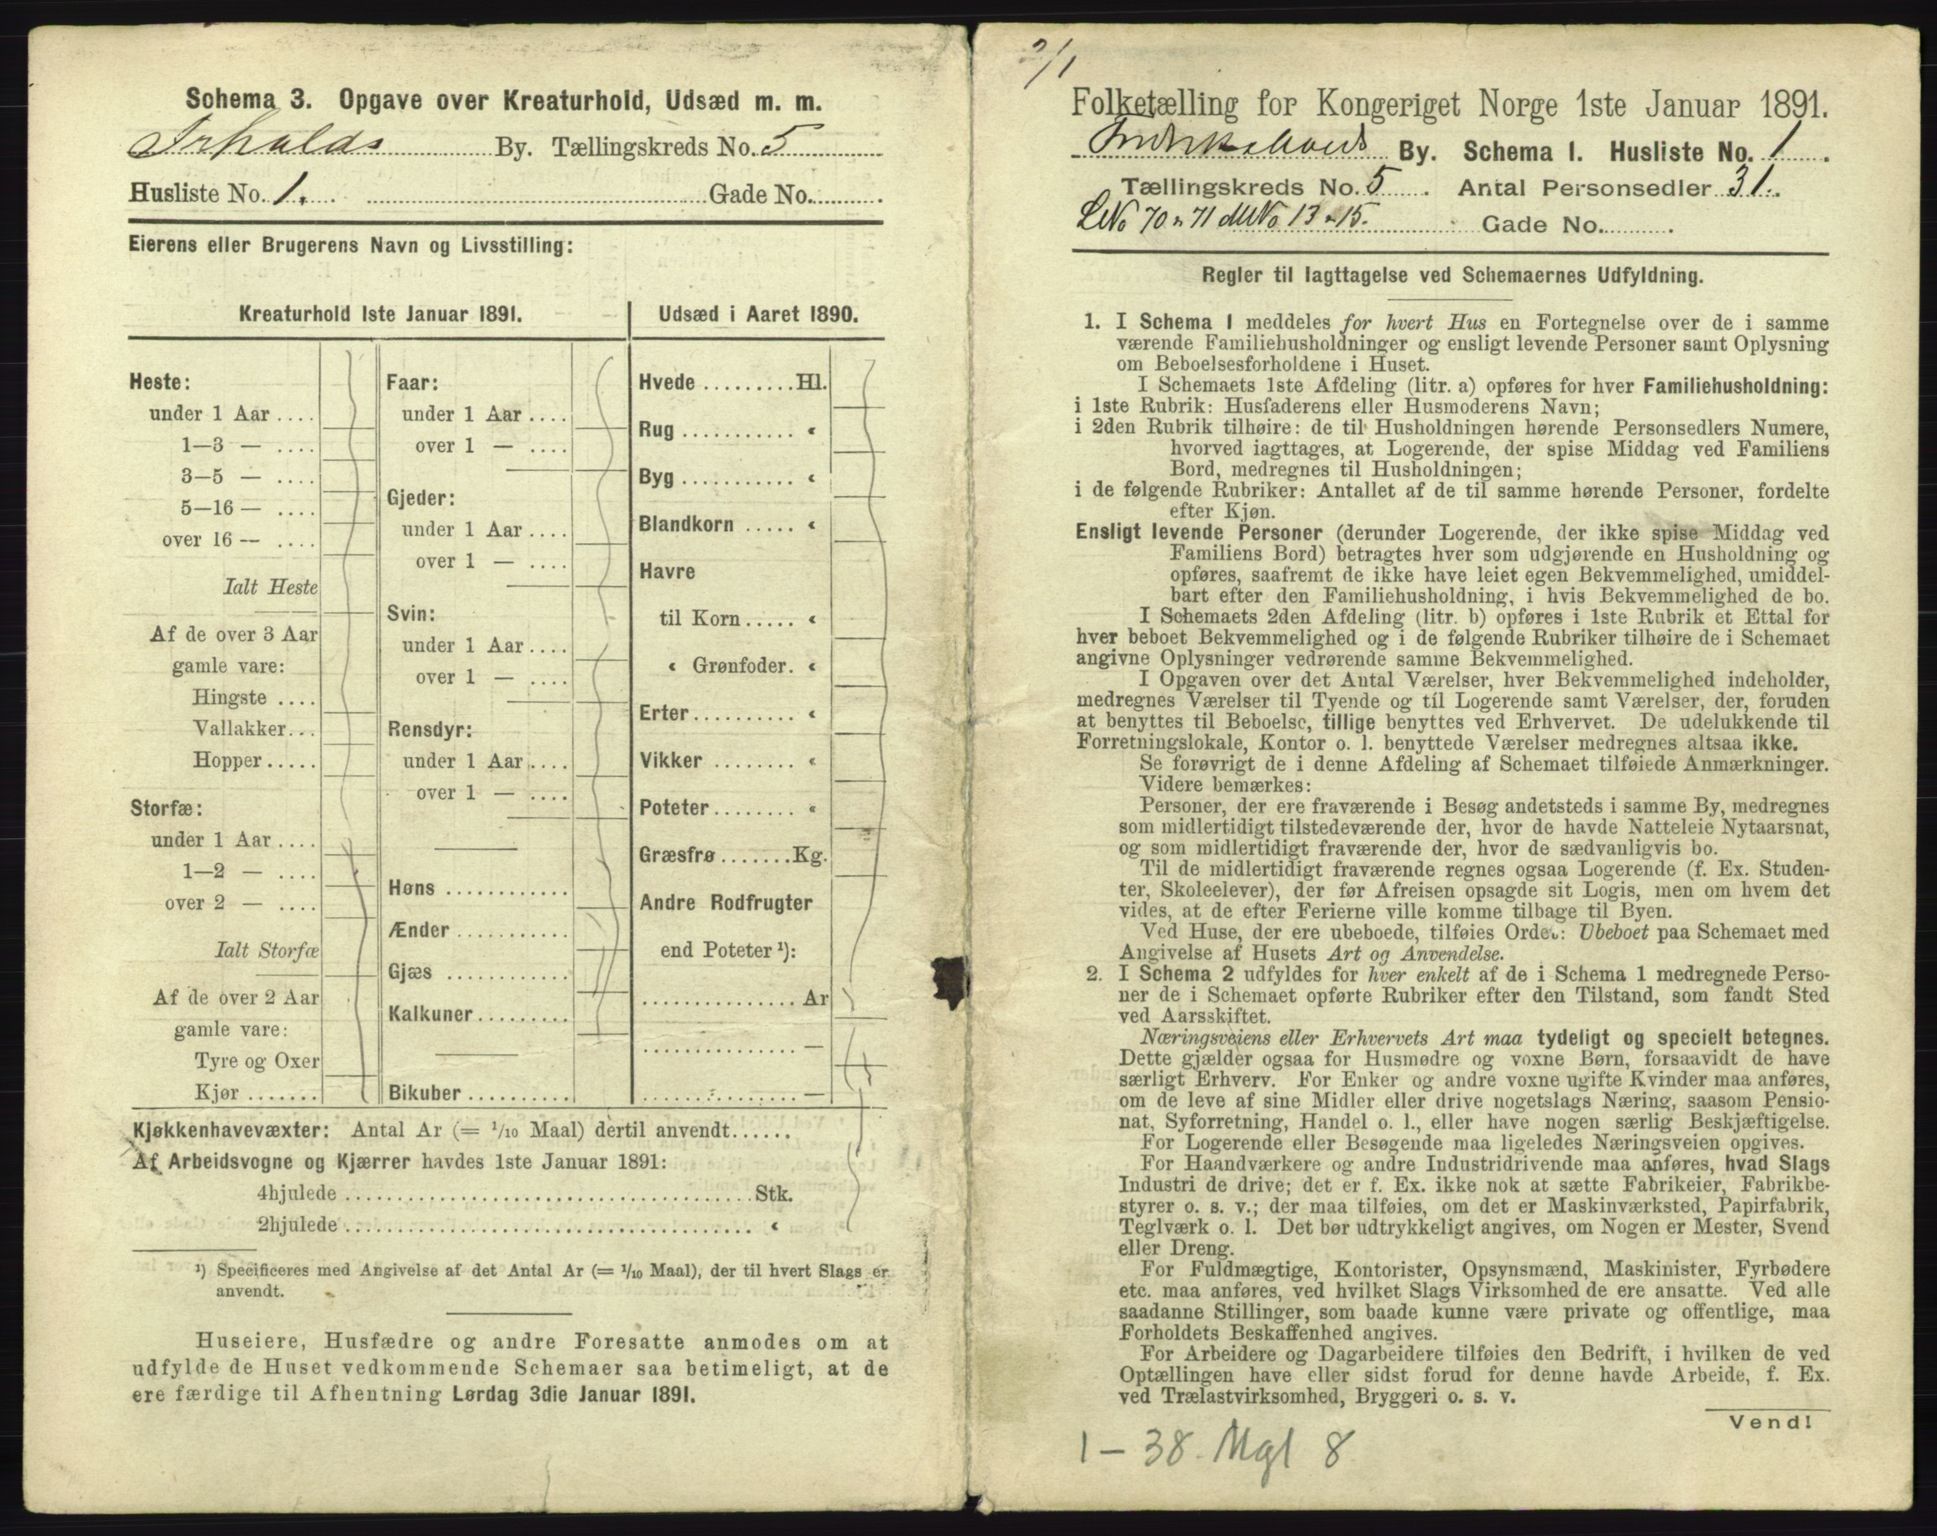 Schema 3. Opgave over Kreaturhold, Udsæd m. m.
Frhalds By. Tællingskreds No. 5
Husliste No. 1. Gade No.
Eierens eller Brugerens Navn og Livsstilling:
Kreaturhold 1ste Januar 1891.
Heste:
under 1 Aar ....
1—3 — ....
3—5 — ....
5—16 — ....
over 16 — ....
Ialt Heste
Af de over 3 Aar
gamle vare:
Hingste ....
Vallakker...
Hopper.....
Storfæ:
under 1 Aar ....
1—2 — ....
over 2 — ....
Ialt Storfæ
Af de over 2 Aar
gamle vare:
Tyre og Oxer
Kjør .......
Faar:
under 1 Aar ....
over 1 — ....
Gjeder:
under 1 Aar ....
over 1 — ....
Svin:
under 1 Aar ....
over 1 — ....
Rensdyr:
under 1 Aar ....
over 1 — ....
Høns ...........
Ænder ..........
Gjæs ...........
Kalkuner........
Bikuber .........
Udsæd i Aaret 1890.
Hvede ......... Hl.
Rug ........... «
Byg ........... «
Blandkorn ..... «
Havre
til Korn ..... «
« Grønfoder. «
Erter ......... «
Vikker ........ «
Poteter ....... «
Græsfrø ....... Kg.
Andre Rodfrugter
end Poteter ¹):
............... Ar
............... —
............... —
Kjøkkenhavevæxter: Antal Ar (= 1/10 Maal) dertil anvendt......
Af Arbeidsvogne og Kjærrer havdes 1ste Januar 1891:
4hjulede ........ Stk.
2hjulede ........ «
¹) Specificeres med Angivelse af det Antal Ar (= 1/10 Maal), der til hvert Slags er
anvendt.
Huseiere, Husfædre og andre Foresatte anmodes om at
udfylde de Huset vedkommende Schemaer saa betimeligt, at de
ere færdige til Afhentning Lørdag 3die Januar 1891.
2/1
Folketælling for Kongeriget Norge 1ste Januar 1891.
Fredrikshalds By. Schema I. Husliste No. 1.
Tællingskreds No. 5. Antal Personsedler 31.
LNo 70 " 71 MNo 13 " 15. Gade No.
Regler til Iagttagelse ved Schemaernes Udfyldning.
1. I Schema 1 meddeles for hvert Hus en Fortegnelse over de i samme
værende Familiehusholdninger og ensligt levende Personer samt Oplysning
om Beboelsesforholdene i Huset.
I Schemaets 1ste Afdeling (litr. a) opføres for hver Familiehusholdning:
i 1ste Rubrik: Husfaderens eller Husmoderens Navn;
i 2den Rubrik tilhøire: de til Husholdningen hørende Personsedlers Numere,
hvorved iagttages, at Logerende, der spise Middag ved Familiens
Bord, medregnes til Husholdningen;
i de følgende Rubriker: Antallet af de til samme hørende Personer, fordelte
efter Kjøn.
Ensligt levende Personer (derunder Logerende, der ikke spise Middag ved
Familiens Bord) betragtes hver som udgjørende en Husholdning og
opføres, saafremt de ikke have leiet egen Bekvemmelighed, umiddel-
bart efter den Familiehusholdning, i hvis Bekvemmelighed de bo.
I Schemaets 2den Afdeling (litr. b) opføres i 1ste Rubrik et Ettal for
hver beboet Bekvemmelighed og i de følgende Rubriker tilhøire de i Schemaet
angivne Oplysninger vedrørende samme Bekvemmelighed.
I Opgaven over det Antal Værelser, hver Bekvemmelighed indeholder,
medregnes Værelser til Tyende og til Logerende samt Værelser, der, foruden
at benyttes til Beboelse, tillige benyttes ved Erhvervet. De udelukkende til
Forretningslokale, Kontor o. l. benyttede Værelser medregnes altsaa ikke.
Se forøvrigt de i denne Afdeling af Schemaet tilføiede Anmærkninger.
Videre bemærkes:
Personer, der ere fraværende i Besøg andetsteds i samme By, medregnes
som midlertidigt tilstedeværende der, hvor de havde Natteleie Nytaarsnat,
og som midlertidigt fraværende der, hvor de sædvanligvis bo.
Til de midlertidigt fraværende regnes ogsaa Logerende (f. Ex. Studen-
ter, Skoleelever), der før Afreisen opsagde sit Logis, men om hvem det
vides, at de efter Ferierne ville komme tilbage til Byen.
Ved Huse, der ere ubeboede, tilføies Ordet: Ubeboet paa Schemaet med
Angivelse af Husets Art og Anvendelse.
2. I Schema 2 udfyldes for hver enkelt af de i Schema 1 medregnede Perso-
ner de i Schemaet opførte Rubriker efter den Tilstand, som fandt Sted
ved Aarsskiftet.
Næringsveiens eller Erhvervets Art maa tydeligt og specielt betegnes.
Dette gjælder ogsaa for Husmødre og voxne Børn, forsaavidt de have
særligt Erhverv. For Enker og andre voxne ugifte Kvinder maa anføres,
om de leve af sine Midler eller drive nogetslags Næring, saasom Pensio-
nat, Syforretning, Handel o. l., eller have nogen særlig Beskjæftigelse.
For Logerende eller Besøgende maa ligeledes Næringsveien opgives.
For Haandværkere og andre Industridrivende maa anføres, hvad Slags
Industri de drive; det er f. Ex. ikke nok at sætte Fabrikeier, Fabrikbe-
styrer o. s. v.; der maa tilføies, om det er Maskinværksted, Papirfabrik,
Teglværk o. l. Det bør udtrykkeligt angives, om Nogen er Mester, Svend
eller Dreng.
For Fuldmægtige, Kontorister, Opsynsmænd, Maskinister, Fyrbødere
etc. maa anføres, ved hvilket Slags Virksomhed de ere ansatte. Ved alle
saadanne Stillinger, som baade kunne være private og offentlige, maa
Forholdets Beskaffenhed angives.
For Arbeidere og Dagarbeidere tilføies den Bedrift, i hvilken de ved
Optællingen have eller sidst forud for denne havde Arbeide, f. Ex.
ved Trælastvirksomhed, Bryggeri o. s. v.
Vend!
1 — 38. Mgl 8